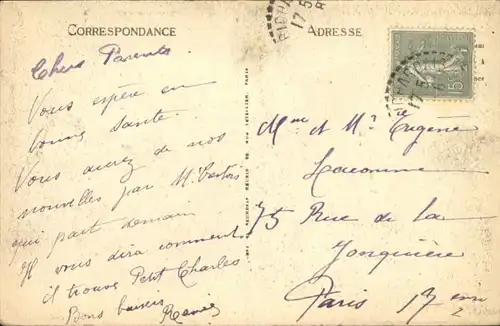 CORRESPONDANCE
Chers Parents
Vous espère en
bonne santé.
Vous aurez de nos
nouvelles par Mr
qui part demain
Il vous dira comment
il trouve Petit Charles
Bons baisers
ADRESSE
Mme et Mr Eugene
75 Rue de la
Jonquière
Paris 17 eme
17 5
15
17 5